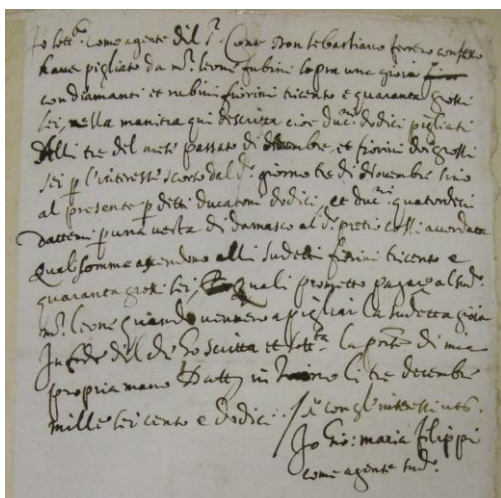 Io sott.to come agente dil S.r Conte Don Sebastiano ferrero confesso
have pigliato da m.r leone fubini sopra una gioia
con diamanti et rubini fiorini tricento e quaranta grossi
sei, nella maniera qui descritta cioe duc.ni dodici pigliati
alli tre del mese passato di 9bre, et fiorini doi grossi
sei p l'interesse scorso dal d.o giorno tre di Novembre sino
al presente p detti ducatoni dodici, et duc.ni quatordeci
dattemi p una vesta di damasco al d.o pretio cossi accordata
Qual somma ascendono alli sudetti fiorini tricento e
quaranta grossi sei, quali prometto pagare al sud.o
m.r leone quando vennero a pigliar la sudetta gioia
In fede dil che ho scritta et sott.ta la pnte di mia
propria mano Datt. in Torino li tre decembre
mille sei cento e dodici // et con gl'interessi
Io Gio: maria filippi
come agente sud.o